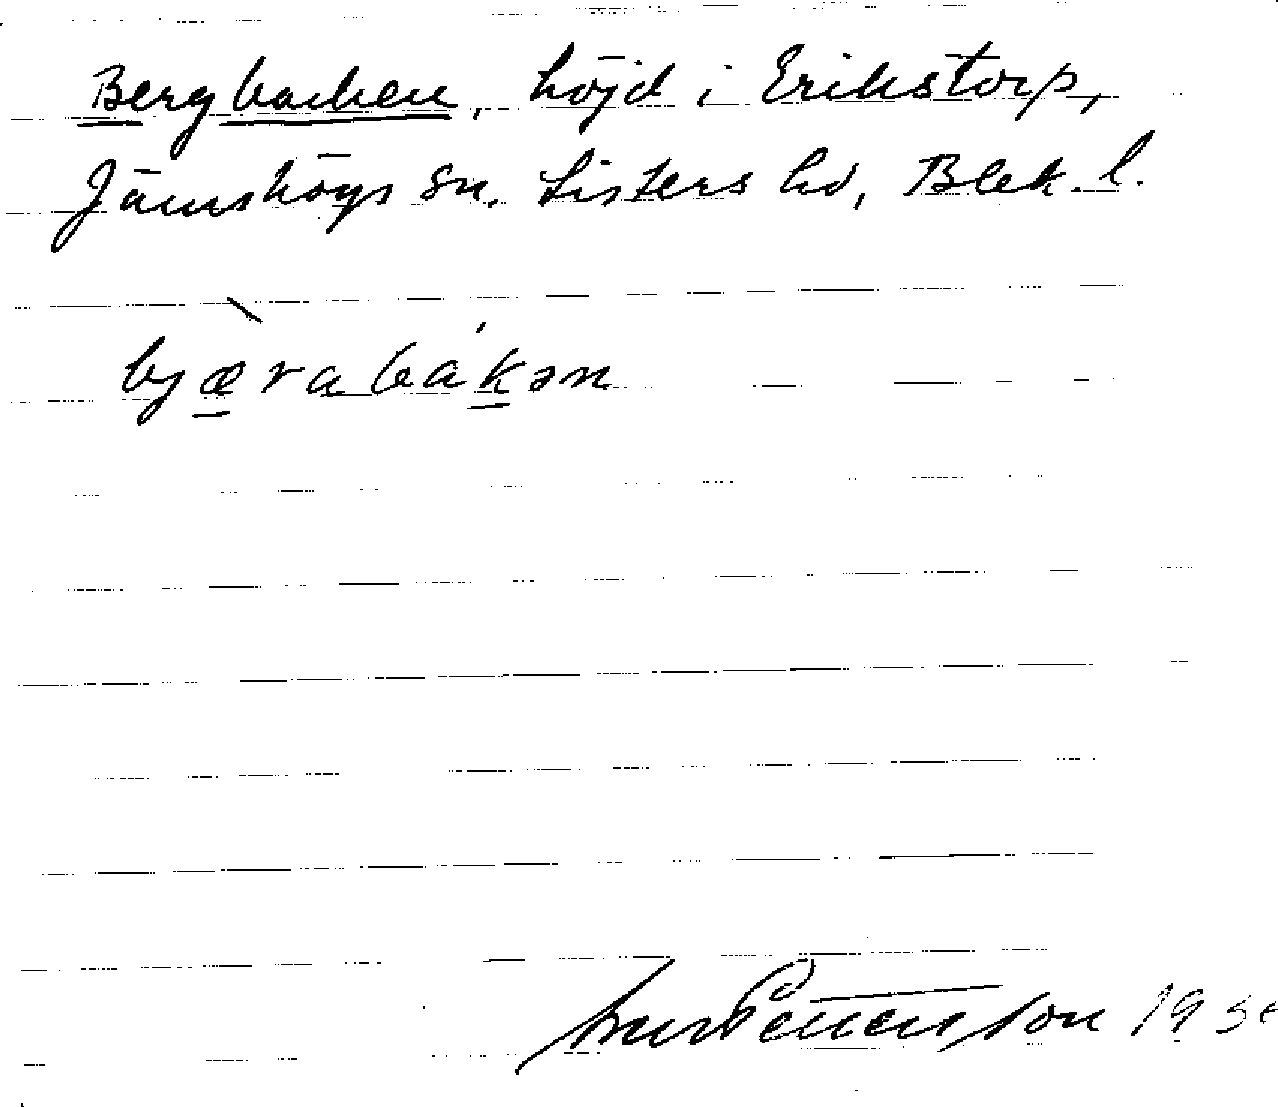 Bergbacken, höjd i Erikstorp,
Jämshögs sn. Listers hd, Blek. l.
bjæ̱rabaḵən